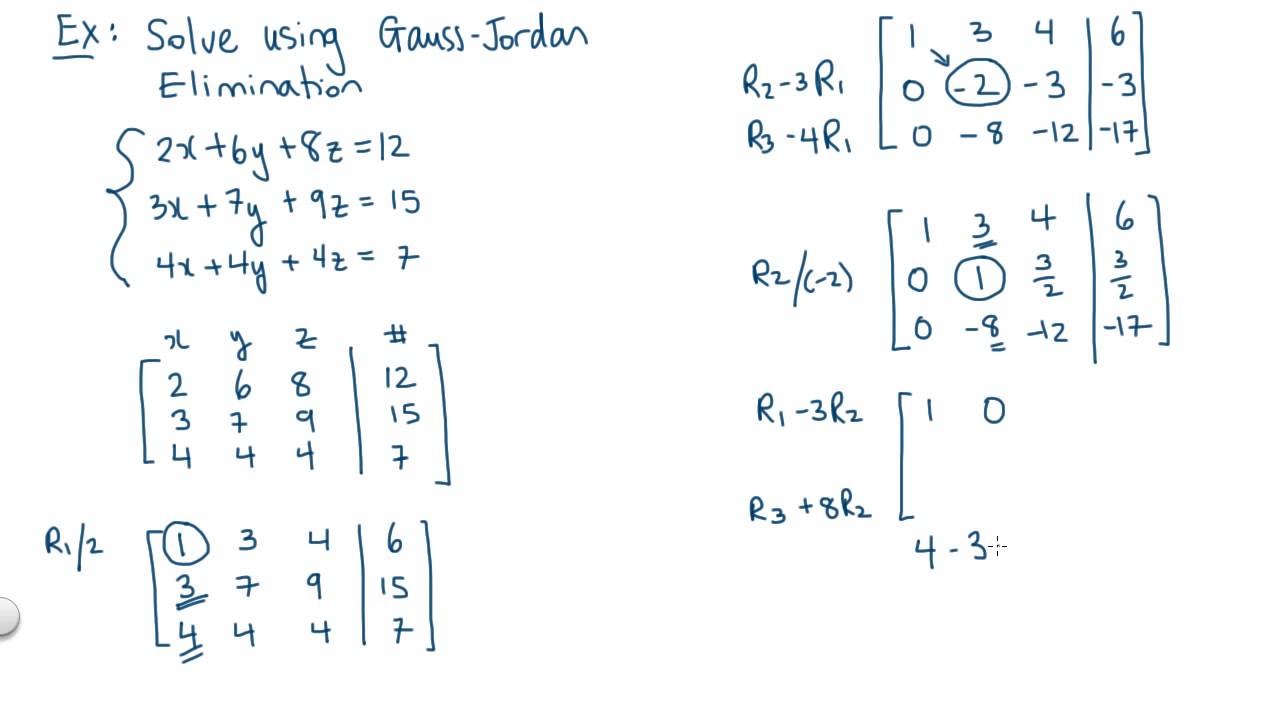 Ex: Solve using Gauss-Jordan
Elimination
2x+6y+8z=12
3x+7y+9z=15
4x+4y+4z=7
x y z #
2 6 8 | 12
3 7 9 | 15
4 4 4 | 7
R1/2
1 3 4 | 6
3 7 9 | 15
4 4 4 | 7
1 3 4 | 6
R2-3R1 0 -2 -3 | -3
R3-4R1 0 -8 -12 | -17
1 3 4 | 6
R2/(-2) 0 1 3/2 | 3/2
0 -8 -12 | -17
R1-3R2 1 0
R3+8R2
4-3